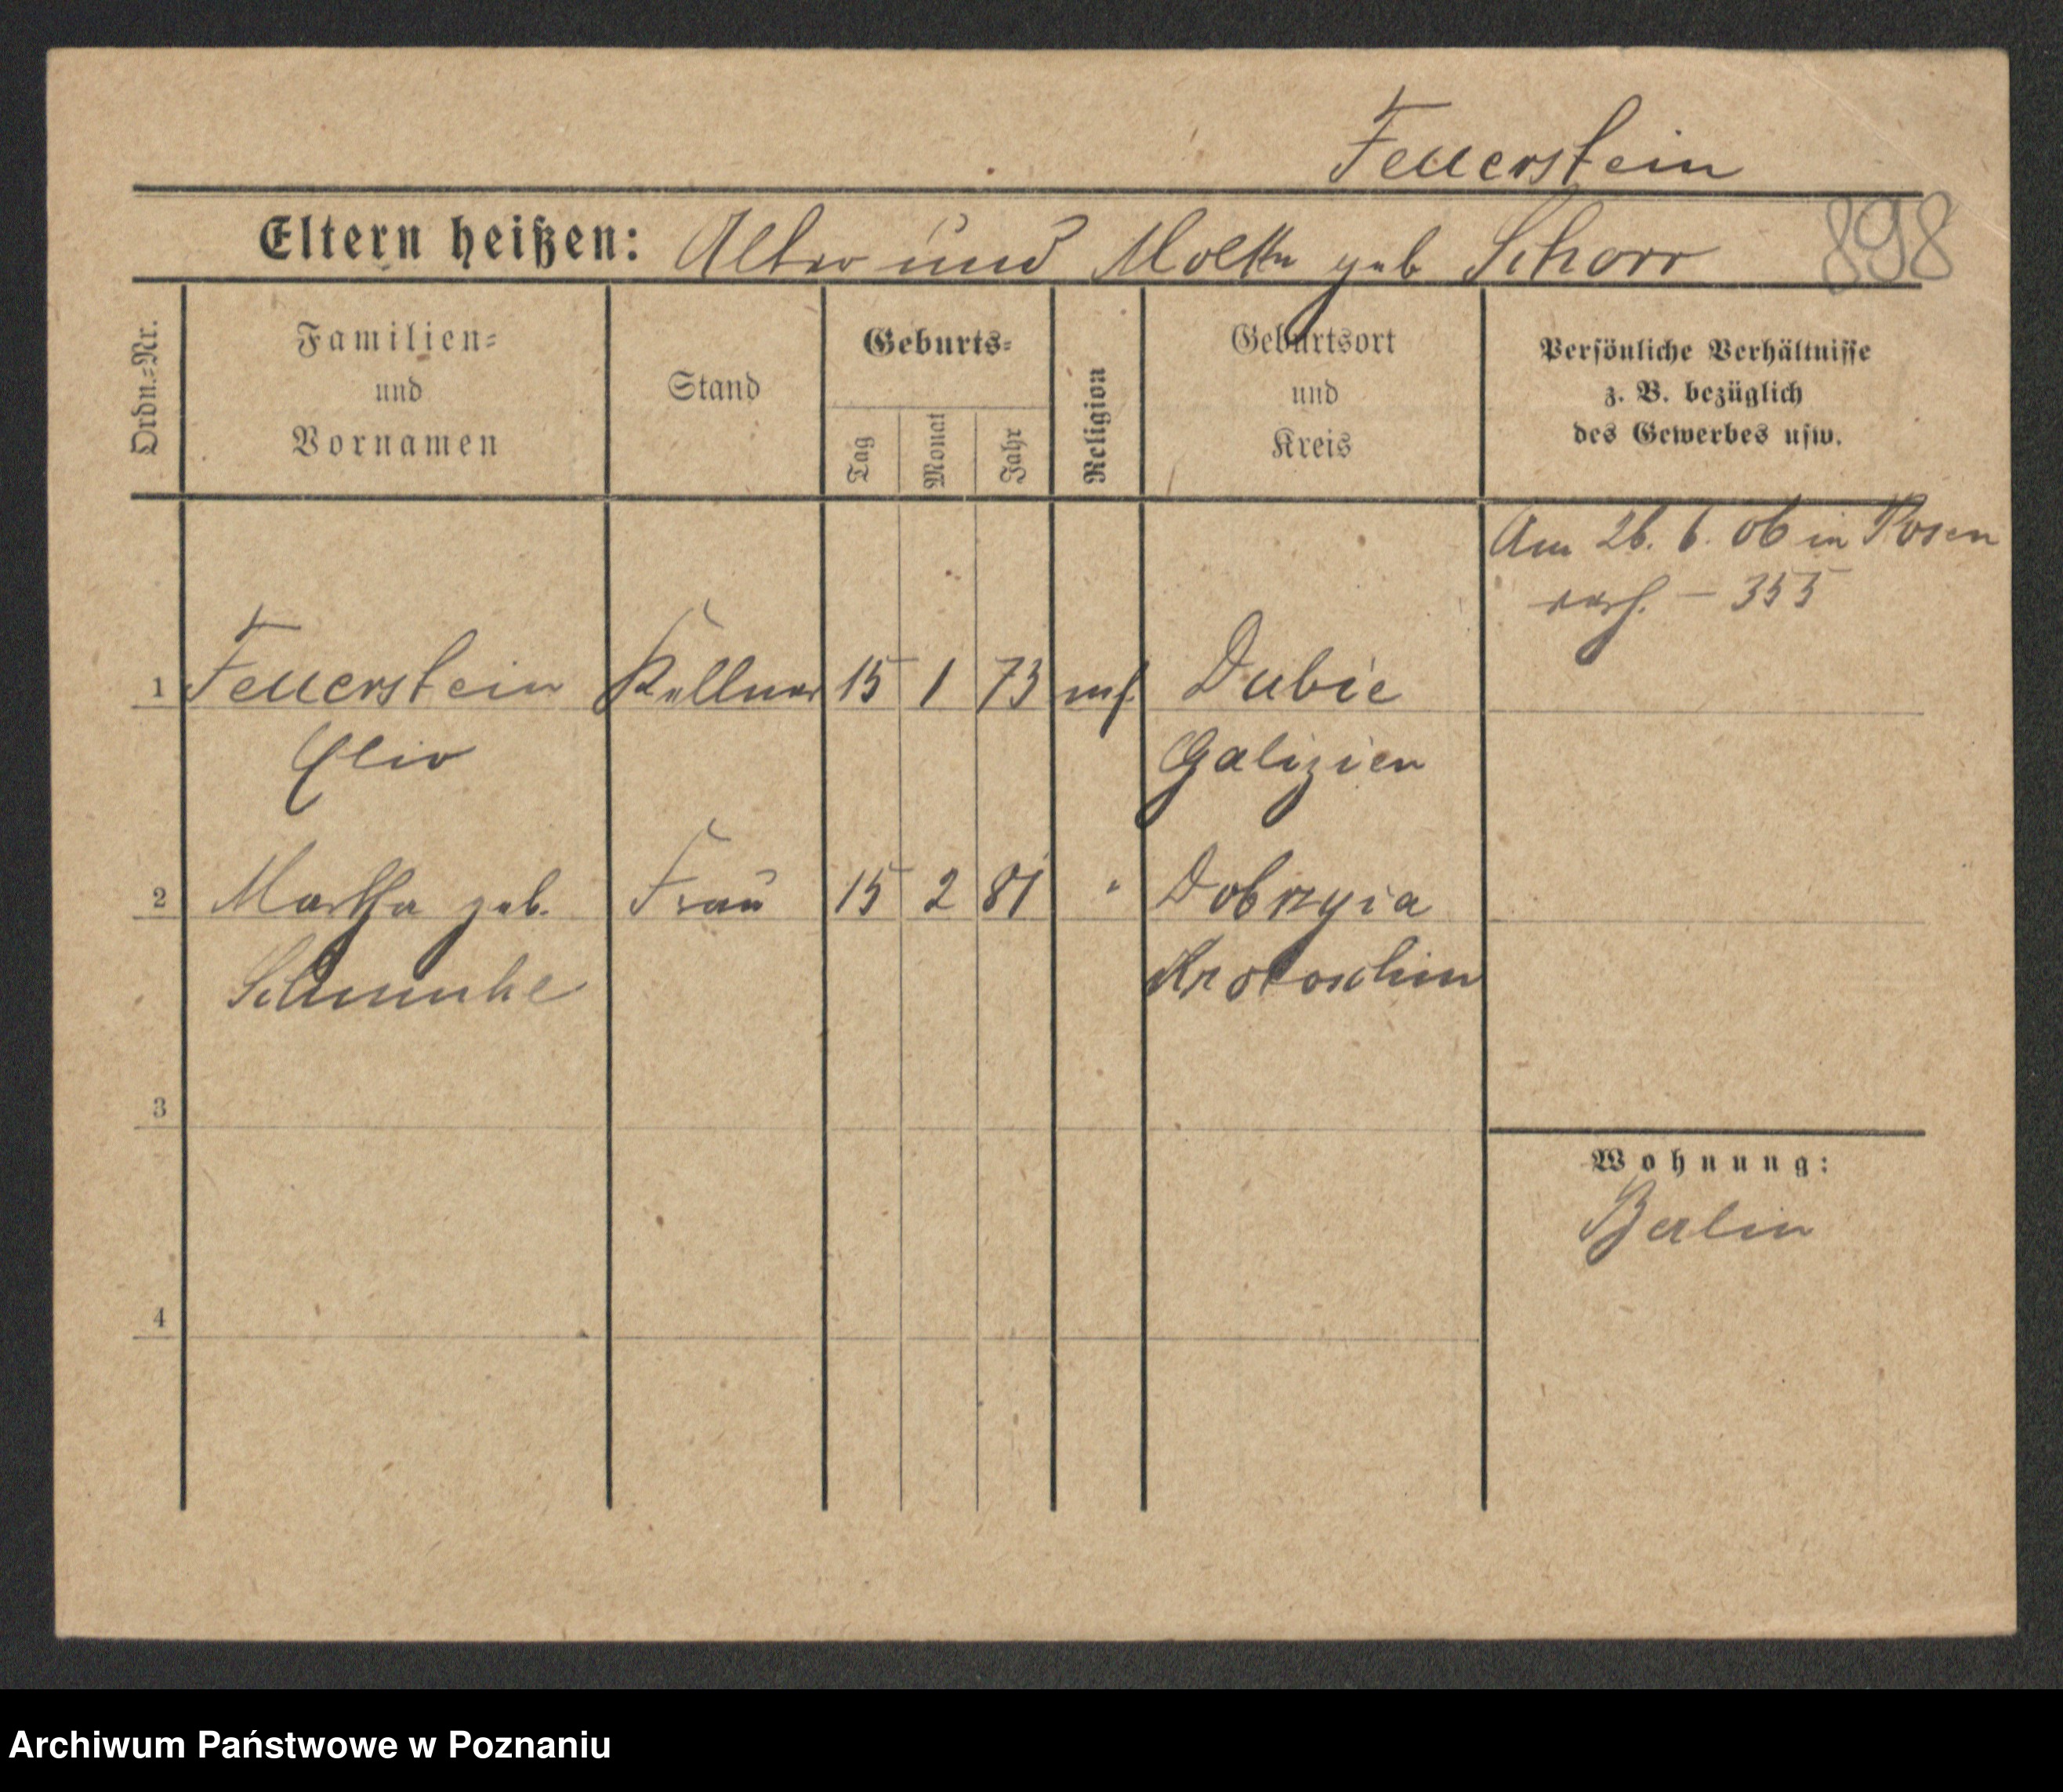 Feuerstein
Eltern heißen: Alter und Molke geb Schorr 898
Ordn.-Nr.
Familien-
und
Vornamen
Stand
Geburts-
Tag
Monat
Jahr
Religion
Geburtsort
und
Kreis
Persönliche Verhältnisse
z. B. bezüglich
des Gewerbes usw.
Am 26. 6. 06 in Posen
- 355
1 Feuerstein Kellner 15 1 73 Dubie
Galizien
2 Martha geb. Frau 15 2 81 " Dobrzyia
Krotoschin
3
Wohnung:
Berlin
4
Archiwum Państwowe w Poznaniu